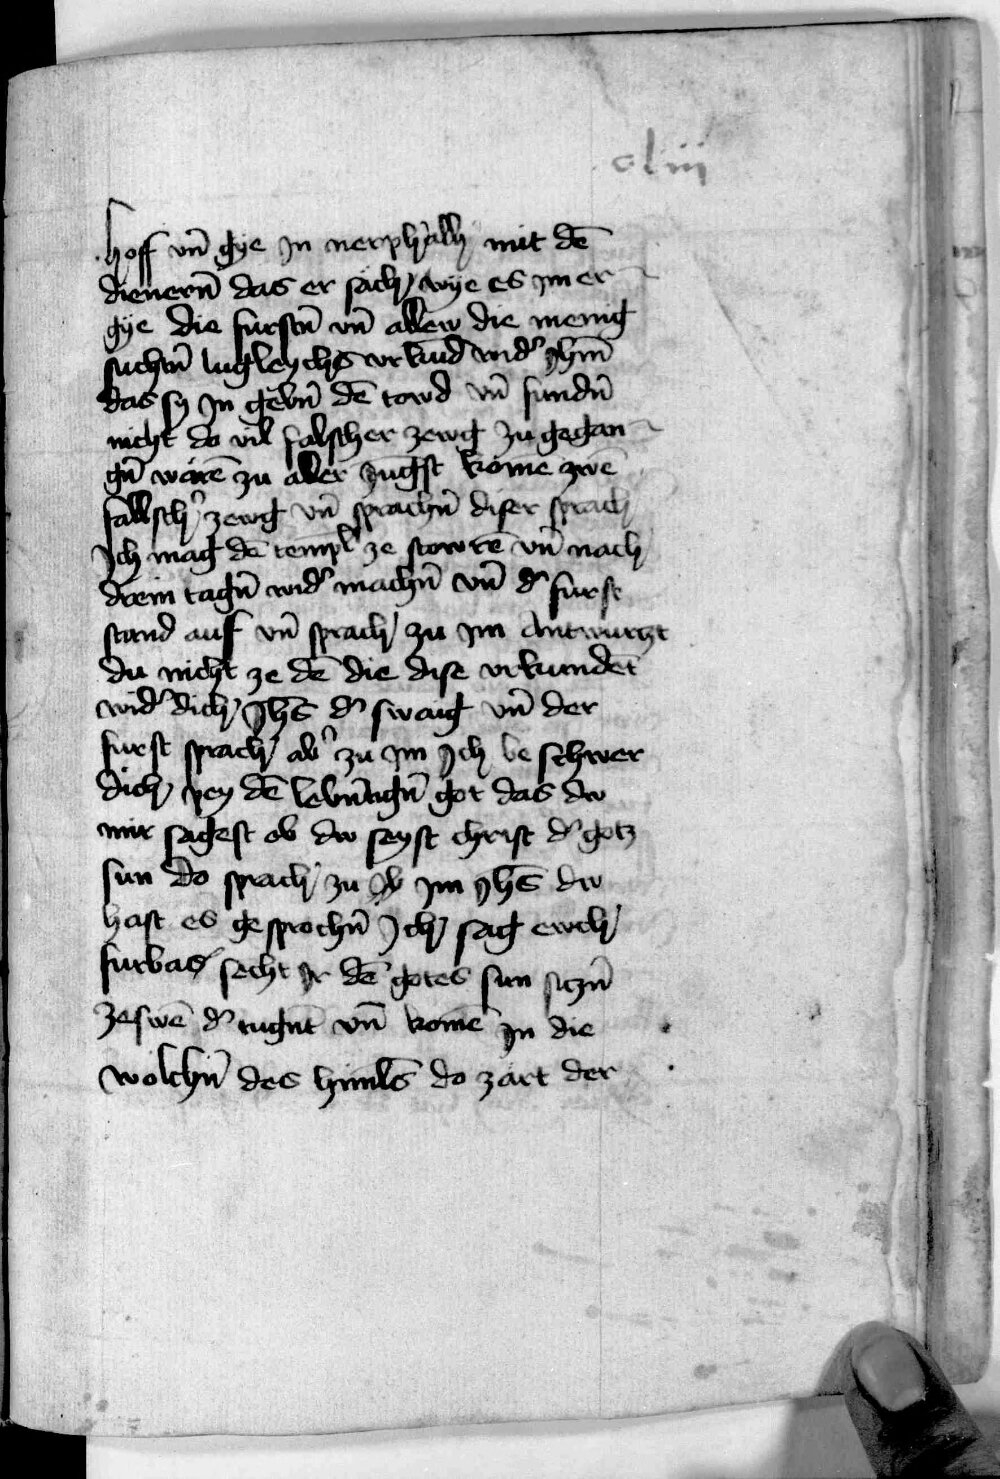 cliii
hoff vn̄ gye In verphallh mit dē
dienern̄ das er sach wye es im er
gye die fursten̄ vn̄ allew die menig
suchtn̄ lugleychs vrkund wid' Jhm̄
das sy In gebn̄ dē towd vn̄ fundn̄
nicht do vil falscher zewg zu gegan
gn̄ warē zu aller Jungst komē zwē
fallsch' zewg vn̄ sprachn̄ diser sprach
Ich mag dē templ ze stowrē vn̄ nach
drein tagn̄ wid' machn̄ vn̄ d' furst
stand auf vn̄ sprach zu im Antwurtzt
du nicht ze dē die dise vrkundēt
wid' dich Jhs̄ d' swaig vn̄ der
furst sprach ab' zu im Ich be schwer
dich pey dē lebn̄tign̄ got das dw
mir sagest ob dw seyst christ d' gotz
sun do sprach zu im Jhs̄ dw
hast es gesprochn̄ Ich sag ewch
furbas secht Ir dē gotes sun siczn̄
zeswē d' tugnt̄ vn̄ komē In die
wolchn̄ des himls̄ do zart der